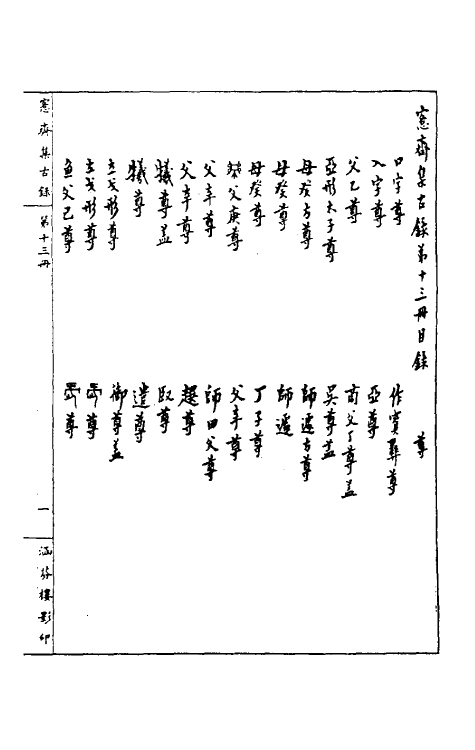 愙齋集古錄第十三冊目錄
尊
口字尊
作寶彝尊
入字尊
亞尊
父乙尊
商父丁尊蓋
亞形木子尊
吳尊蓋
母癸方尊
師遽方尊
母癸尊
師遽
母癸尊
丁子尊
父庚尊
父辛尊
父辛尊
師田父尊
父辛尊
趩尊
犧尊蓋
臤尊
犧尊
遣尊
立戈形尊
御尊蓋
立戈形尊
尊
魚父己尊
尊
愙齋集古錄
第十三冊
一
涵芬樓影印